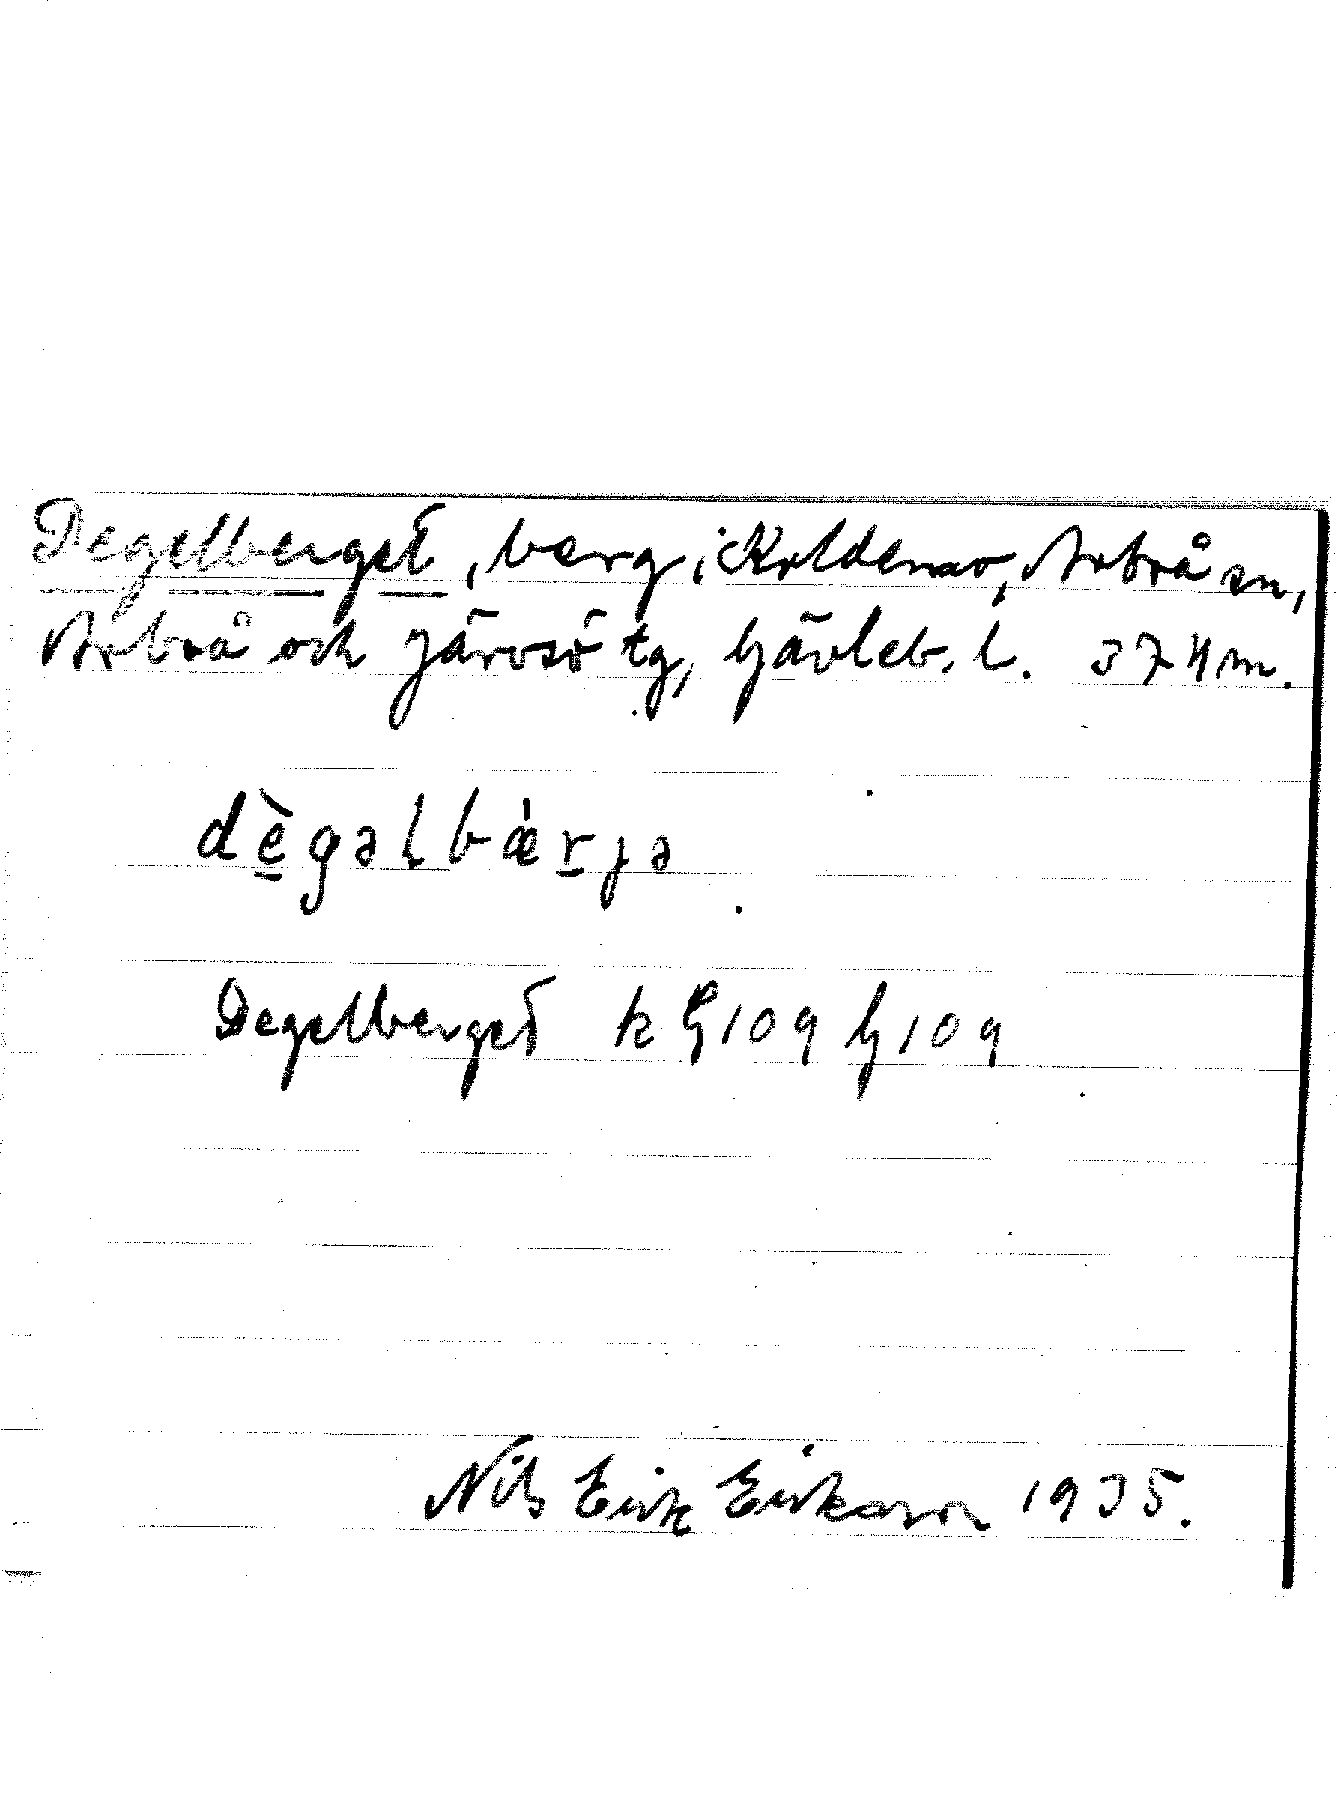 Degelberget, berg i Koldemo, Arbrå sn,
Arbrå och Järvsö tg, Gävleb. l. 374 m.
dègəlbærjə
Degelberget k G 109 G 109
Nils Erik Eriksson 1935.